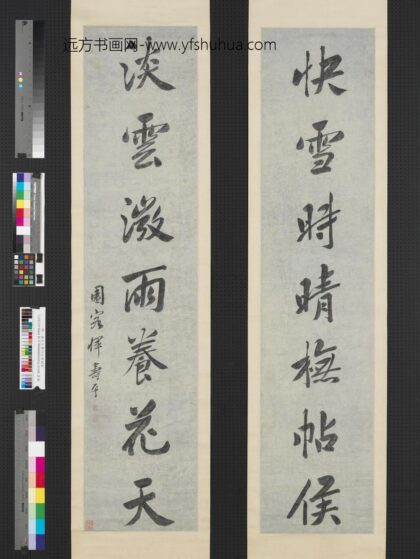 远方书画网-www.yfshuhua.com
快雪時晴橅帖候
淡雲微雨養花天
園客惲壽平